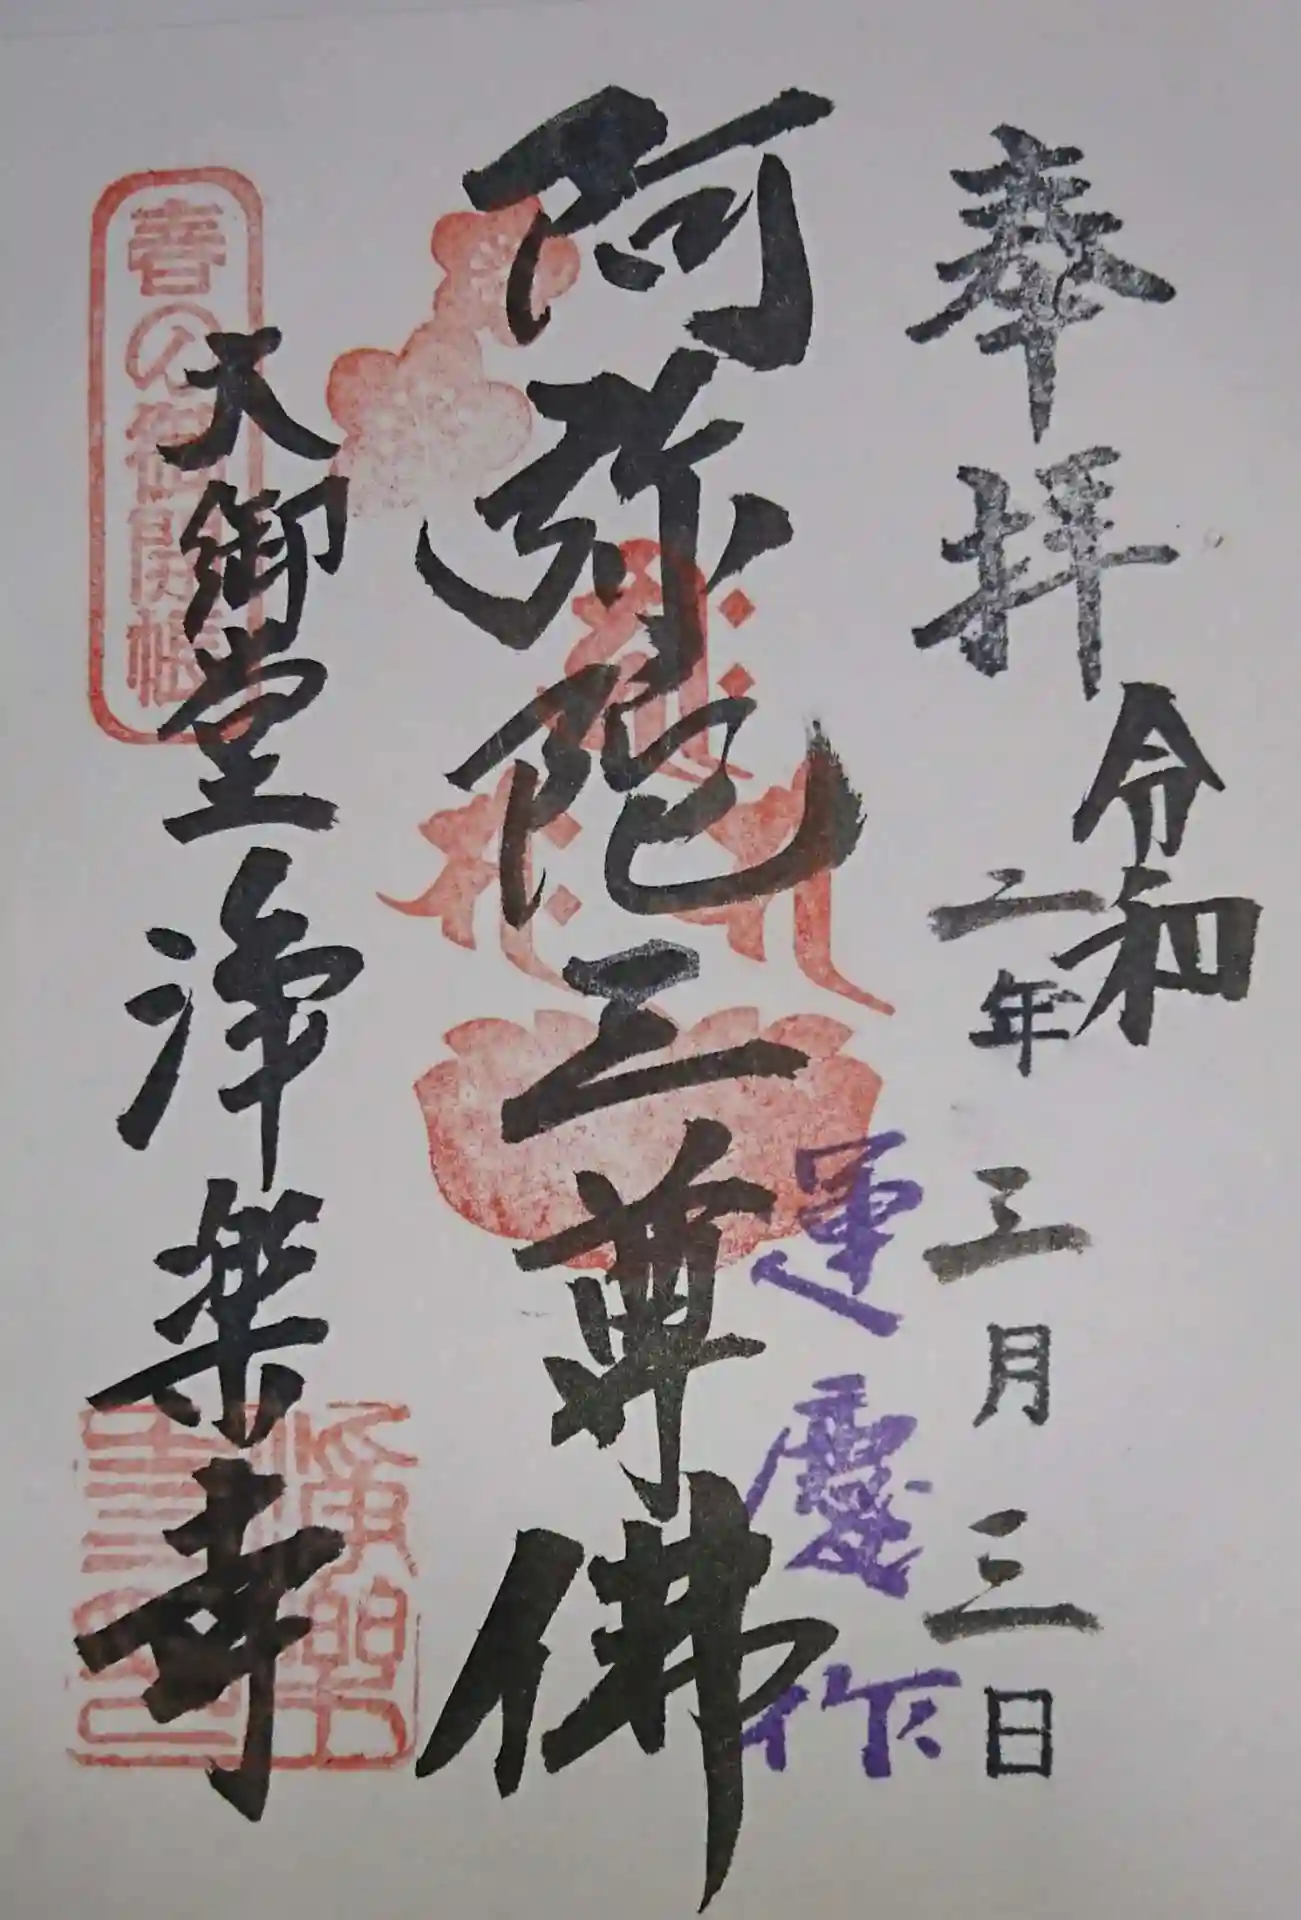 奉拝
令和
二年
三月三日
運慶作
阿弥陀三尊佛
大御堂浄楽寺
春の御開帳